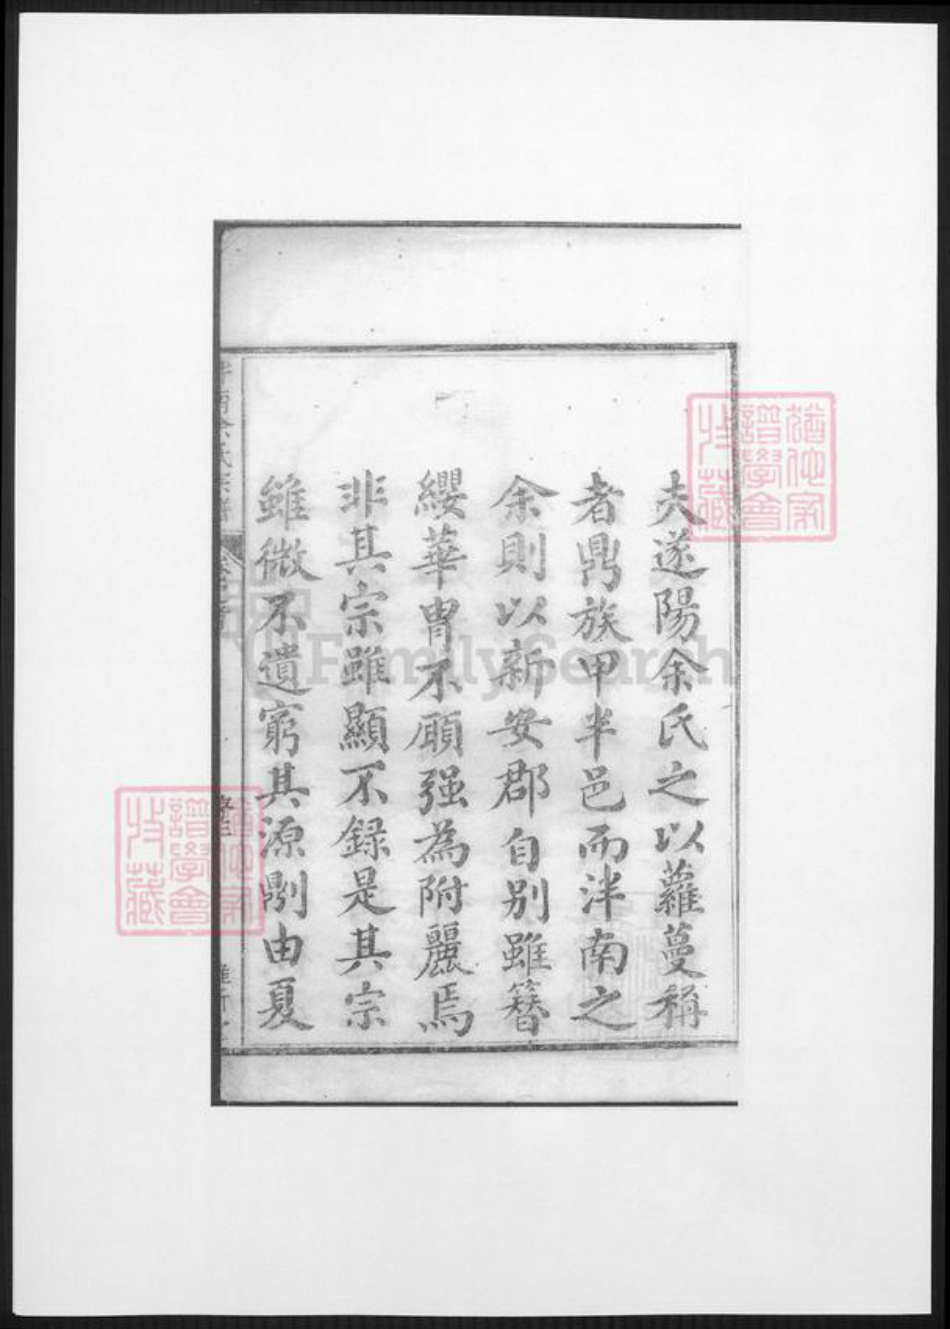 夫遂陽余氏之以蘿蔓稱
者鼎族甲半邑而泮南之
余則以新安郡自別雖簪
纓華胄不願强為附麗焉
非其宗雖顯不録是其宗
雖微不遺窮其源劘由夏
余氏宗譜
譜學會
收藏
FamilySearch
譜學會
收藏